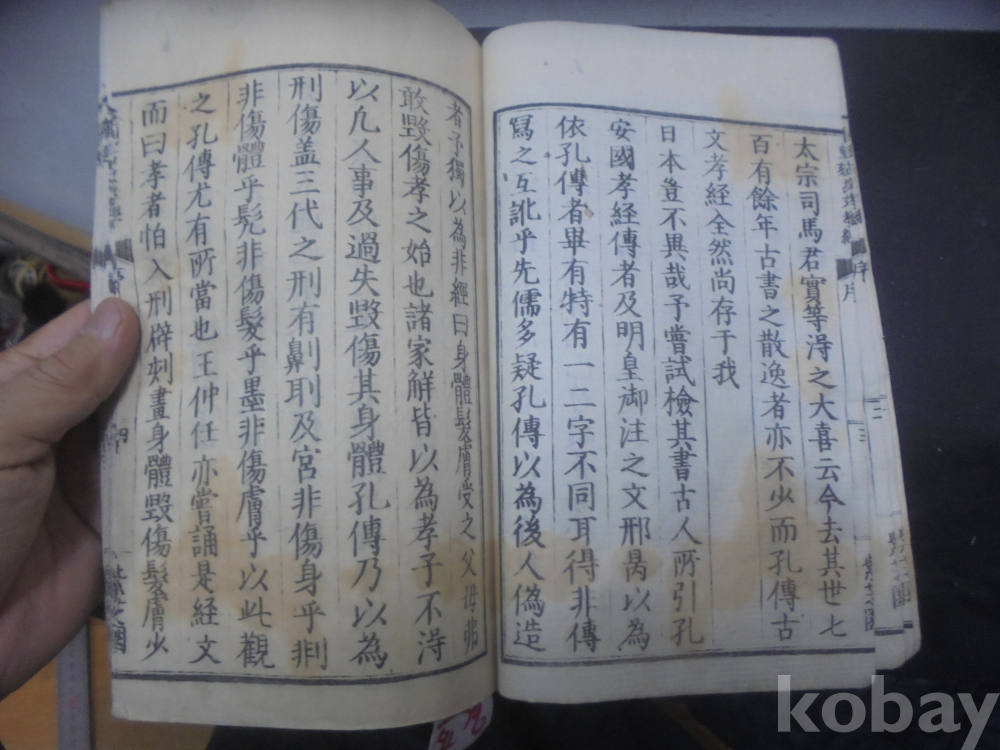 太宗司馬君實等淂之大喜云今去其世七
百有餘年古書之散逸者亦不少而孔傳古
文孝経全然尚存于我
日本豈不異哉予嘗試檢其書古人所引孔
安國孝経傳者及明皇御注之文邢昺以為
依孔傳者畢有特有一二字不同耳得非傳
冩之互訛乎先儒多疑孔傳以為後人偽造
者予獨以為非經曰身體髮膚受之父母弗
敢毀傷孝之始也諸家解皆以為孝子不淂
以凢人事及過失毀傷其身體孔傳乃以為
刑傷盖三代之刑有劓刵及宮非傷身乎刖
非傷體乎髡非傷髮乎墨非傷膚乎以此觀
之孔傳尤有所當也王仲任亦嘗誦是経文
而曰孝者怕入刑辟刺畫身體毀傷髮膚少
序
四
kobay